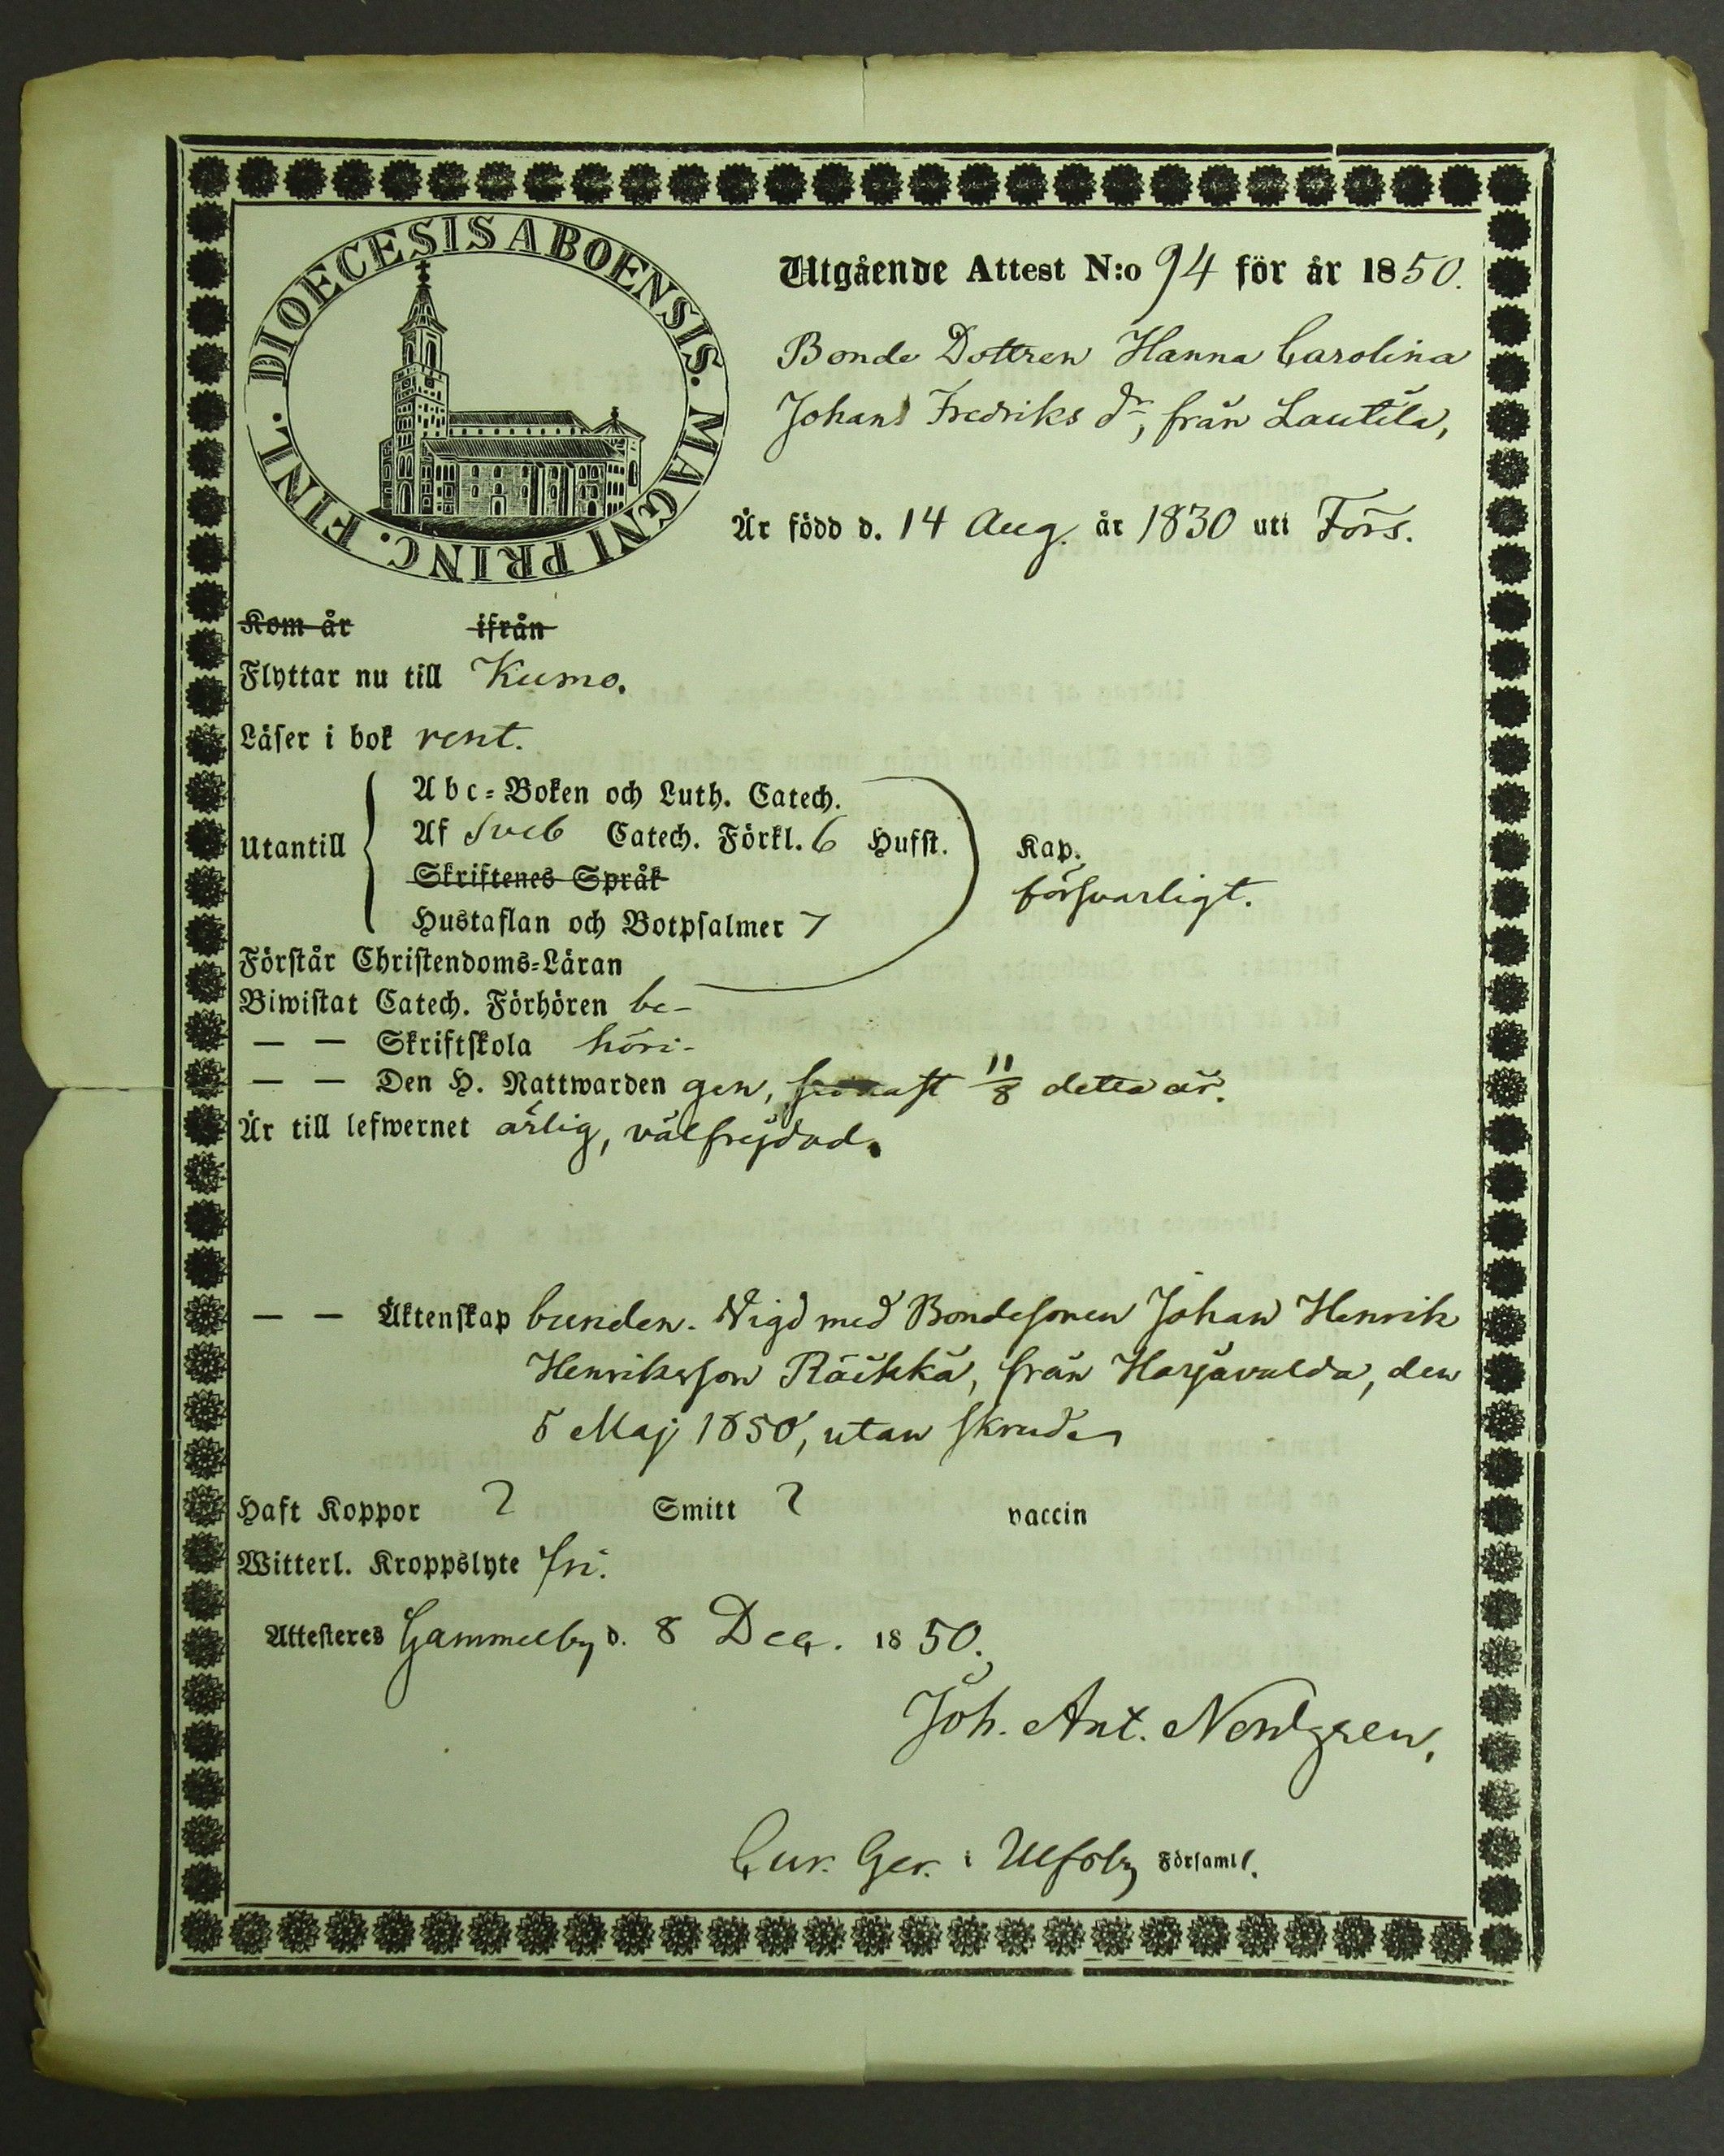 DIOECESIS ABOENSIS. MAGNI PRINC. FINL.
Utgående Attest N:o 94 för år 1850.
Bonde Dottren Hanna Carolina
Johans Fredriks dr, från Lautila,
Är född d. 14 Aug. år 1830 uti Förs.
Kom år ifrån
Flyttar nu till Kumo.
Läser i bok rent.
Utantill
Abc-Boken och Luth. Catech.
Af Sveb Catech. Förkl. 6 Hufst.
Kap.
Skriftenes Språk
försvarligt.
Hustaflan och Botpsalmer 7
Förstår Christendoms-Läran
Biwistat Catech. Förhören be-
— — Skriftskola höri-
— — Den H. Nattwarden gen, senast 11/8 detta år.
Är till lefwernet ärlig, välfrejdad.
— — Äktenskap bunden. Vigd med Bondesonen Johan Henrik
Henriksson Räikkä, från Harjavalda, den
5 Maj 1850, utan skrud
Haft Koppor ? Smitt ? vaccin
Witterl. Kroppslyte fri.
Attesteres Gammelby d. 8 Dec. 1850.
Joh. Ant. Nordgren.
Cur. Ger. i Ulfsby Församl.